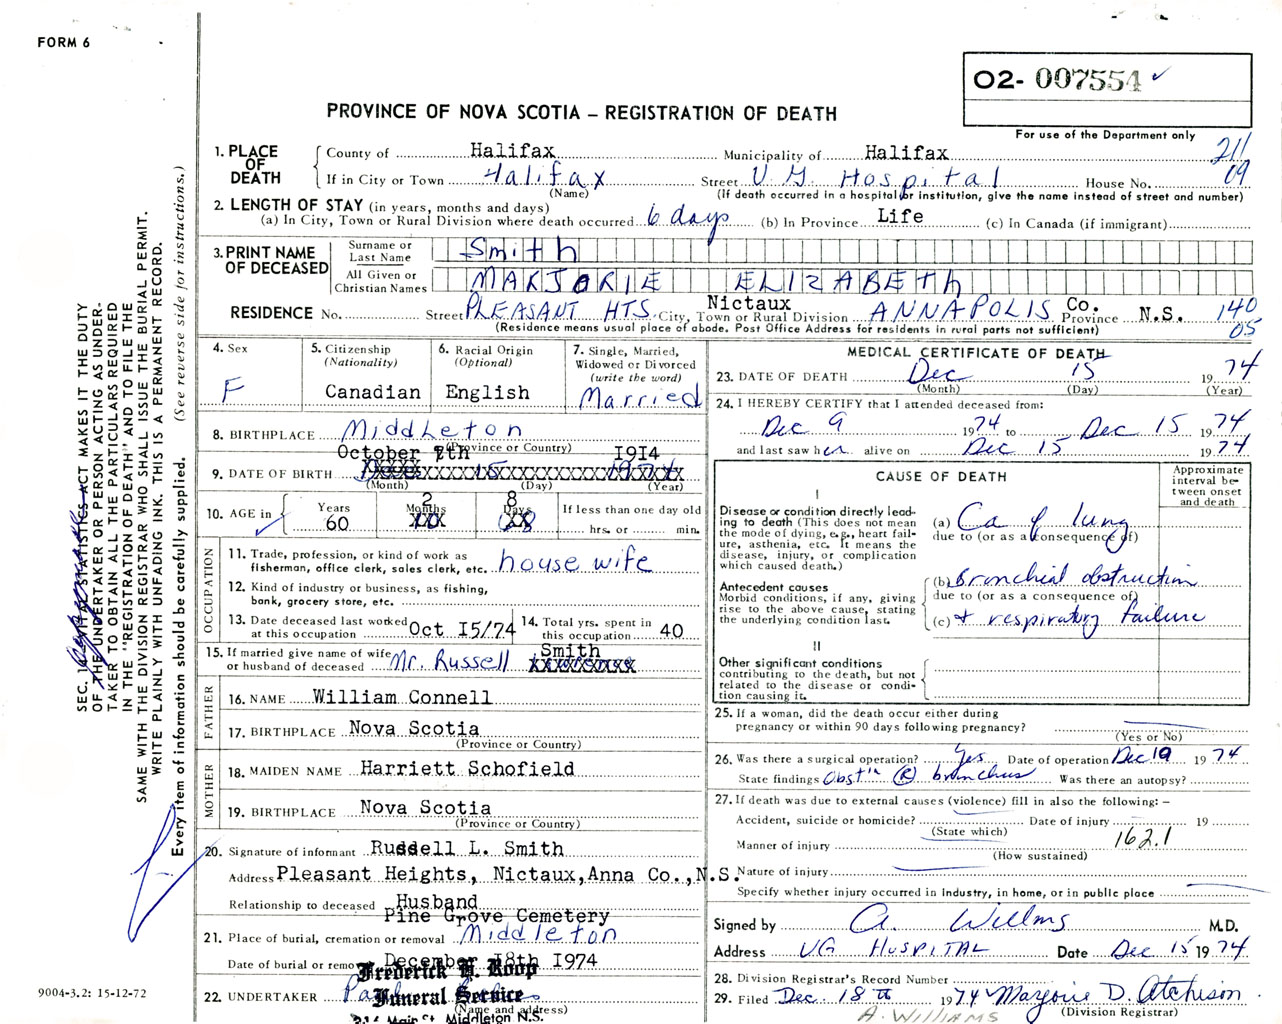 FORM 6
O2- 007554
For use of the Department only
PROVINCE OF NOVA SCOTIA – REGISTRATION OF DEATH
211
09
1. PLACE OF DEATH
County of Halifax Municipality of Halifax
If in City or Town Halifax Street V. G. Hospital House No.
(Name) (If death occurred in a hospital or institution, give the name instead of street and number)
2. LENGTH OF STAY (in years, months and days)
(a) In City, Town or Rural Division where death occurred 6 days (b) In Province Life (c) In Canada (if immigrant)
3. PRINT NAME OF DECEASED
Surname or Last Name Smith
All Given or Christian Names MARJORIE ELIZABETH
RESIDENCE No. Street PLEASANT HTS. City, Town or Rural Division Nictaux ANNAPOLIS Co. Province N.S. 140
05
(Residence means usual place of abode. Post Office Address for residents in rural parts not sufficient)
4. Sex
F
5. Citizenship
(Nationality)
Canadian
6. Racial Origin
(Optional)
English
7. Single, Married, Widowed or Divorced
(write the word)
Married
8. BIRTHPLACE Middleton
(Province or Country)
October 7th 1914
9. DATE OF BIRTH
(Month) (Day) (Year)
10. AGE in
Years 60
Months 2
Days 8
If less than one day old
hrs. or min.
OCCUPATION
11. Trade, profession, or kind of work as fisherman, office clerk, sales clerk, etc. house wife
12. Kind of industry or business, as fishing, bank, grocery store, etc.
13. Date deceased last worked at this occupation Oct 15/74
14. Total yrs. spent in this occupation 40
15. If married give name of wife or husband of deceased Mr. Russell Smith
FATHER
16. NAME William Connell
17. BIRTHPLACE Nova Scotia
(Province or Country)
MOTHER
18. MAIDEN NAME Harriett Schofield
19. BIRTHPLACE Nova Scotia
(Province or Country)
20. Signature of informant Russell L. Smith
Address Pleasant Heights, Nictaux, Anna Co., N.S.
Relationship to deceased Husband
Pine Grove Cemetery
21. Place of burial, cremation or removal Middleton
Date of burial or remo December 18th 1974
22. UNDERTAKER
Frederick H. Roop
Funeral Service
(Name and address)
Main St. Middleton N.S.
MEDICAL CERTIFICATE OF DEATH
23. DATE OF DEATH Dec 15 1974
(Month) (Day) (Year)
24. I HEREBY CERTIFY that I attended deceased from:
Dec 9 1974 to Dec 15 1974
and last saw her alive on Dec 15 1974
CAUSE OF DEATH
Approximate interval between onset and death
I
Disease or condition directly leading to death (This does not mean the mode of dying, e.g., heart failure, asthenia, etc. It means the disease, injury, or complication which caused death.)
(a) Ca of lung
due to (or as a consequence of)
Antecedent causes
Morbid conditions, if any, giving rise to the above cause, stating the underlying condition last.
(b) bronchial obstruction
due to (or as a consequence of)
(c) + respiratory failure
II
Other significant conditions contributing to the death, but not related to the disease or condition causing it.
25. If a woman, did the death occur either during pregnancy or within 90 days following pregnancy?
(Yes or No)
26. Was there a surgical operation? Yes Date of operation Dec 10 1974
State findings Obst'n (R) bronchus Was there an autopsy?
27. If death was due to external causes (violence) fill in also the following: –
Accident, suicide or homicide? Date of injury 19
(State which) 162.1
Manner of injury
(How sustained)
Nature of injury
Specify whether injury occurred in industry, in home, or in public place
Signed by A. Willms M.D.
Address VG HOSPITAL Date Dec 15 1974
28. Division Registrar's Record Number
29. Filed Dec 18th 1974 Marjorie D. Atchison
(Division Registrar)
A. WILLIAMS
ACT MAKES IT THE DUTY
OF THE UNDERTAKER OR PERSON ACTING AS UNDER-
TAKER TO OBTAIN ALL THE PARTICULARS REQUIRED
IN THE "REGISTRATION OF DEATH" AND TO FILE THE
SAME WITH THE DIVISION REGISTRAR WHO SHALL ISSUE THE BURIAL PERMIT.
WRITE PLAINLY WITH UNFADING INK. THIS IS A PERMANENT RECORD.
Every item of information should be carefully supplied. (See reverse side for instructions.)
9004-3.2: 15-12-72